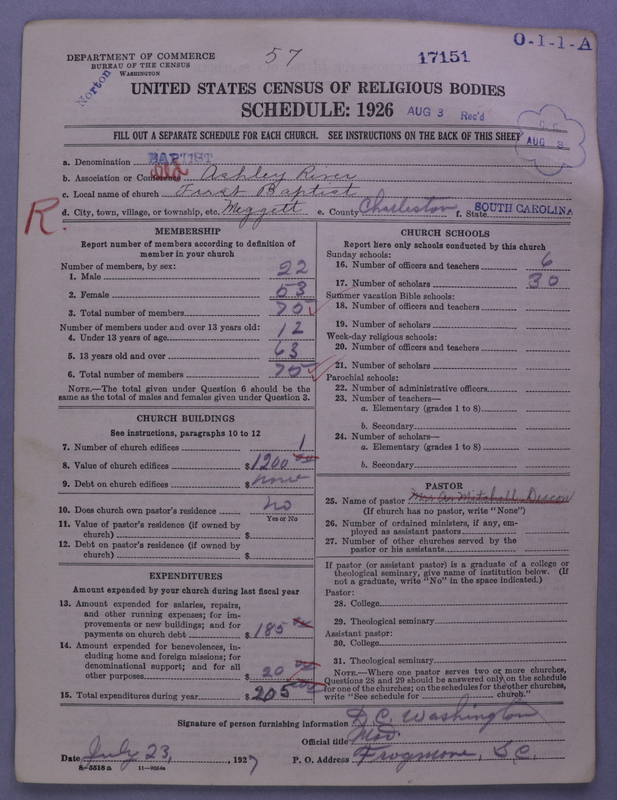 57
17151
O-1-1-A
DEPARTMENT OF COMMERCE
BUREAU OF THE CENSUS
WASHINGTON
Norton
UNITED STATES CENSUS OF RELIGIOUS BODIES
SCHEDULE: 1926 AUG 3 Rec'd
FILL OUT A SEPARATE SCHEDULE FOR EACH CHURCH. SEE INSTRUCTIONS ON THE BACK OF THIS SHEET
AUG 3
a. Denomination BAPTIST
b. Association or Conference Old Ashley River
c. Local name of church First Baptist
R.
d. City, town, village, or township, etc. Meggett e. County Charleston f. State SOUTH CAROLINA
MEMBERSHIP
Report number of members according to definition of
member in your church
Number of members, by sex:
1. Male 22
2. Female 53
3. Total number of members 75
Number of members under and over 13 years old:
4. Under 13 years of age 12
5. 13 years old and over 63
6. Total number of members 75
NOTE.—The total given under Question 6 should be the
same as the total of males and females given under Question 3.
CHURCH BUILDINGS
See instructions, paragraphs 10 to 12
7. Number of church edifices 1
8. Value of church edifices $1200 00
9. Debt on church edifices $ none
10. Does church own pastor's residence no
Yes or No
11. Value of pastor's residence (if owned by
church) $
12. Debt on pastor's residence (if owned by
church) $
EXPENDITURES
Amount expended by your church during last fiscal year
13. Amount expended for salaries, repairs,
and other running expenses; for im-
provements or new buildings; and for
payments on church debt $ 185
14. Amount expended for benevolences, in-
cluding home and foreign missions; for
denominational support; and for all
other purposes $ 20 00
15. Total expenditures during year $ 205 00
CHURCH SCHOOLS
Report here only schools conducted by this church
Sunday schools:
16. Number of officers and teachers 6
17. Number of scholars 30
Summer vacation Bible schools:
18. Number of officers and teachers
19. Number of scholars
Week-day religious schools:
20. Number of officers and teachers
21. Number of scholars
Parochial schools:
22. Number of administrative officers
23. Number of teachers—
a. Elementary (grades 1 to 8)
b. Secondary
24. Number of scholars—
a. Elementary (grades 1 to 8)
b. Secondary
PASTOR
25. Name of pastor Mitchell Deacon
(If church has no pastor, write "None")
26. Number of ordained ministers, if any, em-
ployed as assistant pastors
27. Number of other churches served by the
pastor or his assistants
If pastor (or assistant pastor) is a graduate of a college or
theological seminary, give name of institution below. (If
not a graduate, write "No" in the space indicated.)
Pastor:
28. College
29. Theological seminary
Assistant pastor:
30. College
31. Theological seminary
NOTE.—Where one pastor serves two or more churches,
Questions 28 and 29 should be answered only on the schedule
for one of the churches; on the schedules for the other churches,
write "See schedule for church."
Signature of person furnishing information D. C. Washington
Official title Mod.
Date July 23, 1927 P. O. Address Frogmore, S.C.
8-5518a 11-9284a